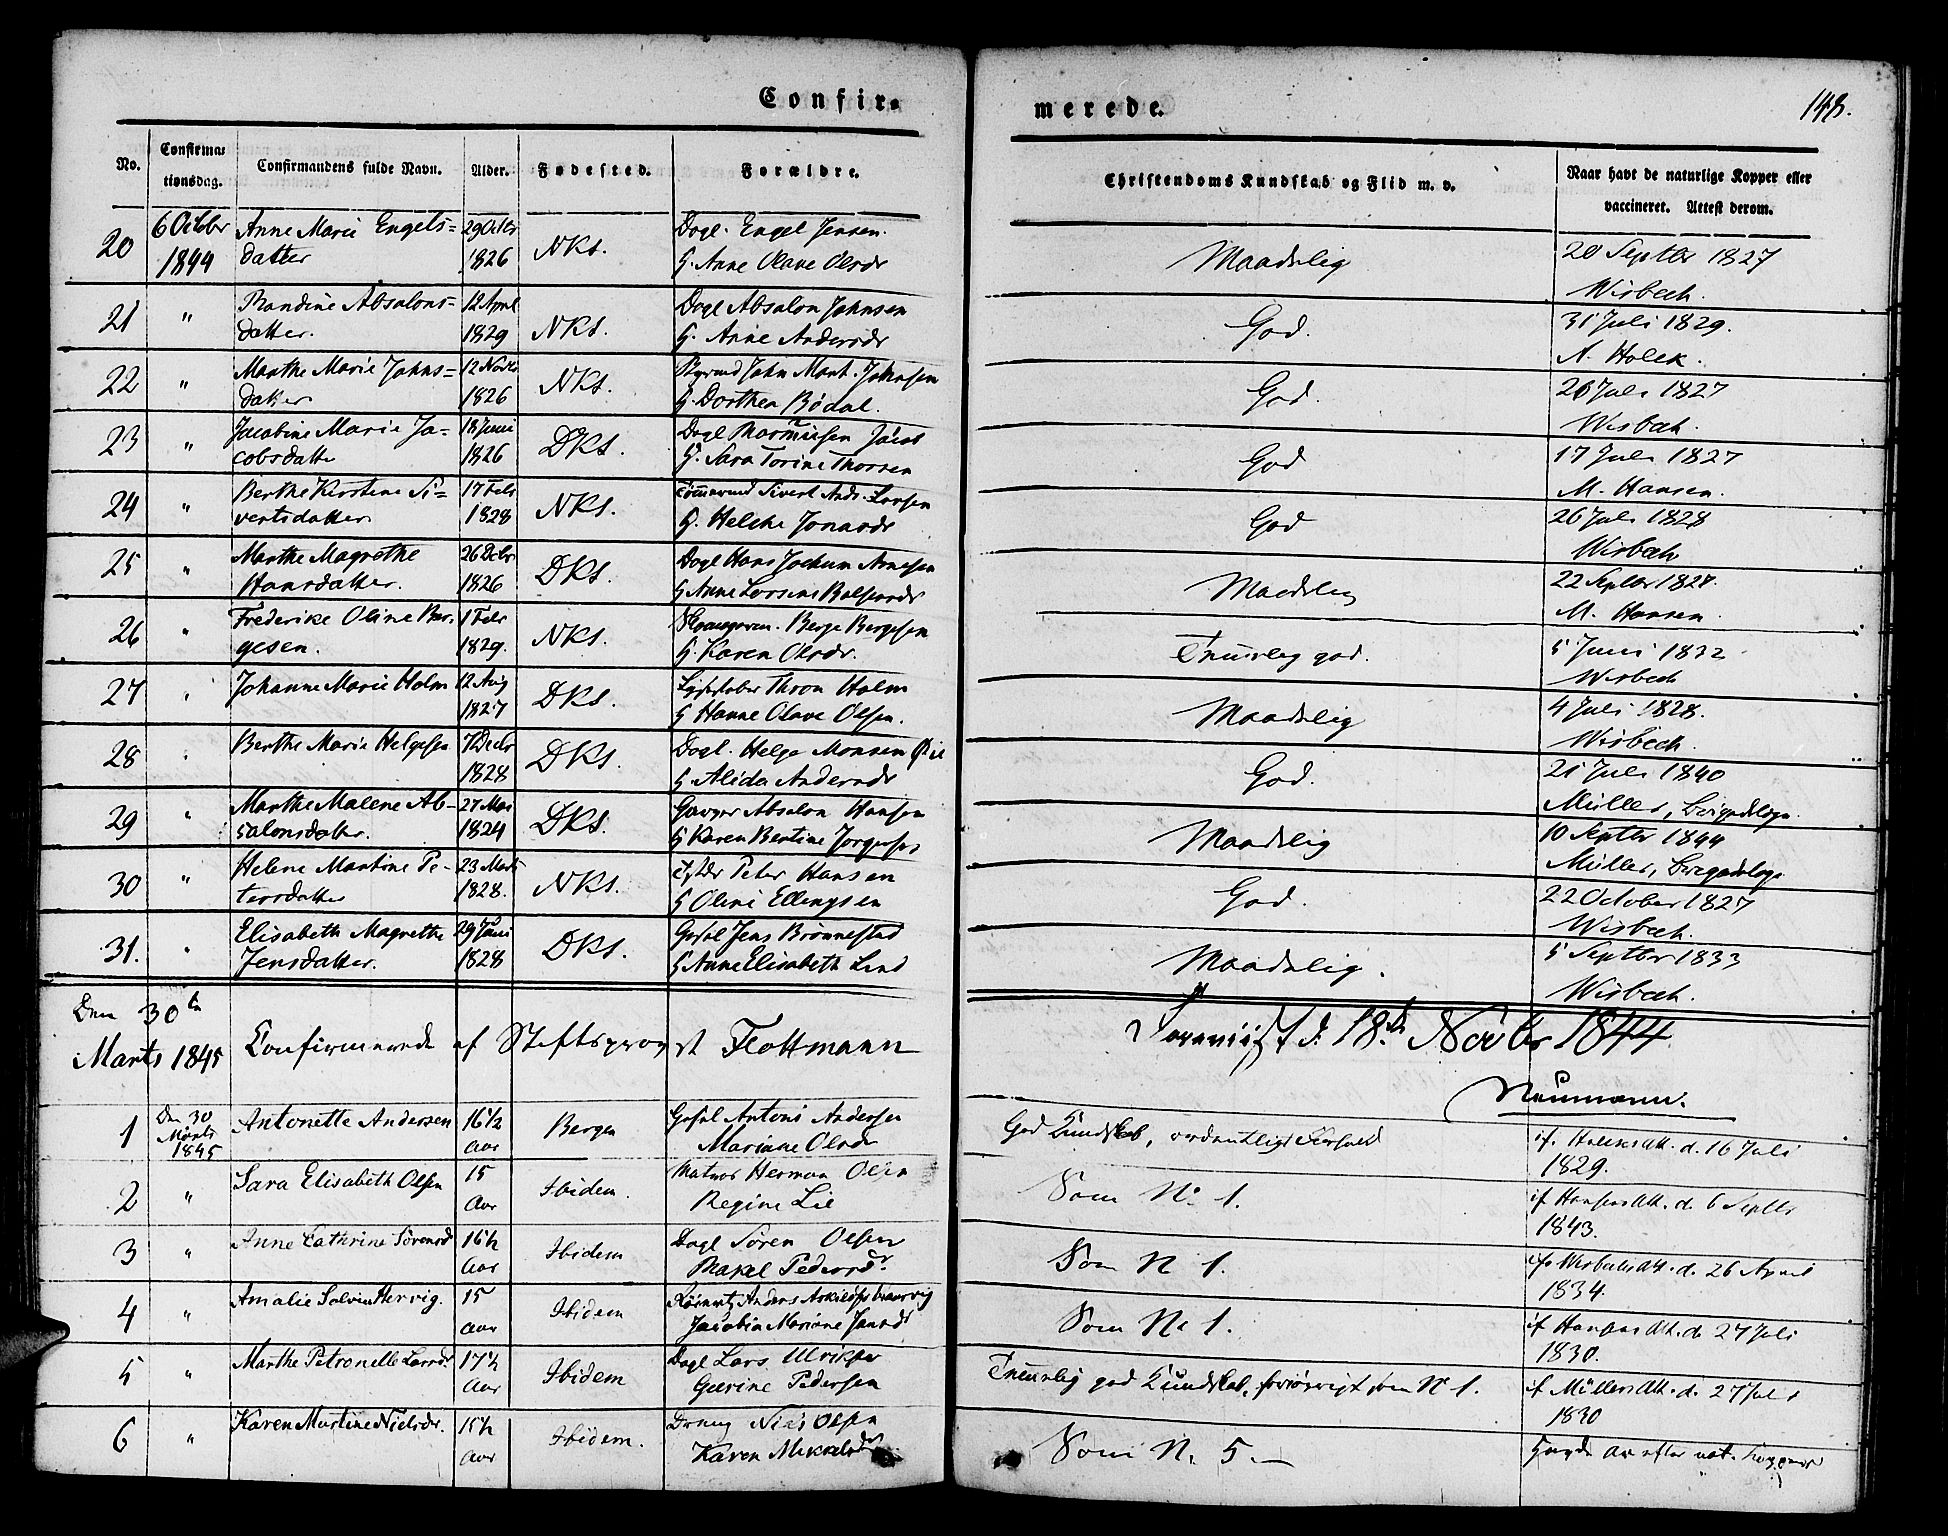 Confir-
merede.
148.
No.
Confirma-
tionsdag.
Confirmandens fulde Navn.
Alder.
Fødested.
Forældre.
Christendoms Kundskab og Flid m. v.
Naar havt de naturlige Kopper eller
vaccineret. Attest derom.
20 6 Octbr Anne Marie Engels= 29 Octbr NKs. Dagl. Engel Jensen. Maadelig 20 Septbr 1827
1844 datter 1826 G. Anne Olave Olsdr Wisbech.
21 " Randine Absalons= 12 April NKs. Dagl Absalon Johnsen God. 31 Juli 1829.
datter. 1829 G. Anne Andersdr A. Holck.
22 " Marthe Marie Johns= 12 Novbr NKs. John Mart. Johnsen God. 26 Juli 1827
datter 1826 G. Dorthea Bødal. Wisbech.
23 " Jacobine Marie Ja= 18 Juni DKs. Dagl Rasmusen Jacob God 17 Juli 1827
cobsdatter 1826 G. Sara Torine Thorsen M. Hansen.
24 " Berthe Kirstine Si= 17 Febr NKs. Tømmermd Sivert Ands. Larsen God 26 Juli 1828
vertsdatter 1828 G. Helche Jonasdr Wisbech
25 " Marthe Magrethe 26 Debr DKs. Dagl Hans Jochum Arnesen Maadelig 22 Septbr 1828.
Hansdatter. 1826 G Anne M. Hansen
26 " Frederike Oline Bør- 1 Febr NKs. Børge Børgesen Temmelig god. 5 Juni 1832
gesen. 1829. G. Karen Olsdr. Wisbech
27 " Johanne Marie Holm 12 Aug DKs. Thron Holm Maadelig 4 Juli 1828.
1827 G Hanne Olave Olsen. Wisbech.
28 " Berthe Marie Helgesen 7 Decbr DKs. Dagl. Helge Monsen Øie God. 21 Juli 1840
1828 G Alida Andersdr Müller, Brigadelæge.
29 " Marthe Malene Ab- 27 Mai DKs. Absalon Hansen Maadelig 10 Septbr 1844
salonsdatter. 1824 G Karen Bertine Jørgensen Müller, Brigadelæge
30 " Helene Martine Pe- 23 Marts NKs. Peter Hansen God. 22 October 1827
tersdatter 1828. G Oline Ellingsen Wisbech.
31. " Elisabeth Magrethe 29 Juni DKs. Jens Brønnestad Maadelig. 5 Septbr 1833
Jensdatter. 1828 G Anne Elisabeth Lind Wisbech.
Den 30te
Marts 1845 Confirmerede af Stiftsprovst Flottmann
d. 18de Novbr 1844
Neumann.
1 Den 30 Marts 1845 Antonette Andersen 16½ Bergen Antoni Andersen God Kundskab, ordentligt Forhold if. Holcks Att. d. 16 Juli
Aar Mariane Olsdr 1829.
2 " Sara Elisabeth Olsen 15 Ibidem. Matros Herman Olsen Som No 1. if Hansens Att. d. 6 Septbr
Aar Regine Lie 1843.
3 " Anne Cathrine Sørensd 16½ Ibidem Dagl Søren Olsen Som N 1. if. Wisbechs Att. d. 26 April
Aar Rakel Pedersdr. 1834.
4 " Amalie Hervig. 15 Ibidem Anders Som No 1. if Hansens Att. d. 27 Juli
Aar Jacobia Mariane Jansdr 1830.
5 " Marthe Petronelle Larsdr 17½ Ibidem Dagl Lars Ulriksen Temmelig god Kundskab, forøvrigt som N 1. if Müllers Att. d. 27 Juli
Aar Geerine Pedersen 1830
6 " Karen Martine Nielsdr. 15½ Ibidem. Niels Olsen Som N. 5.
Aar Karen Mikkelsdr